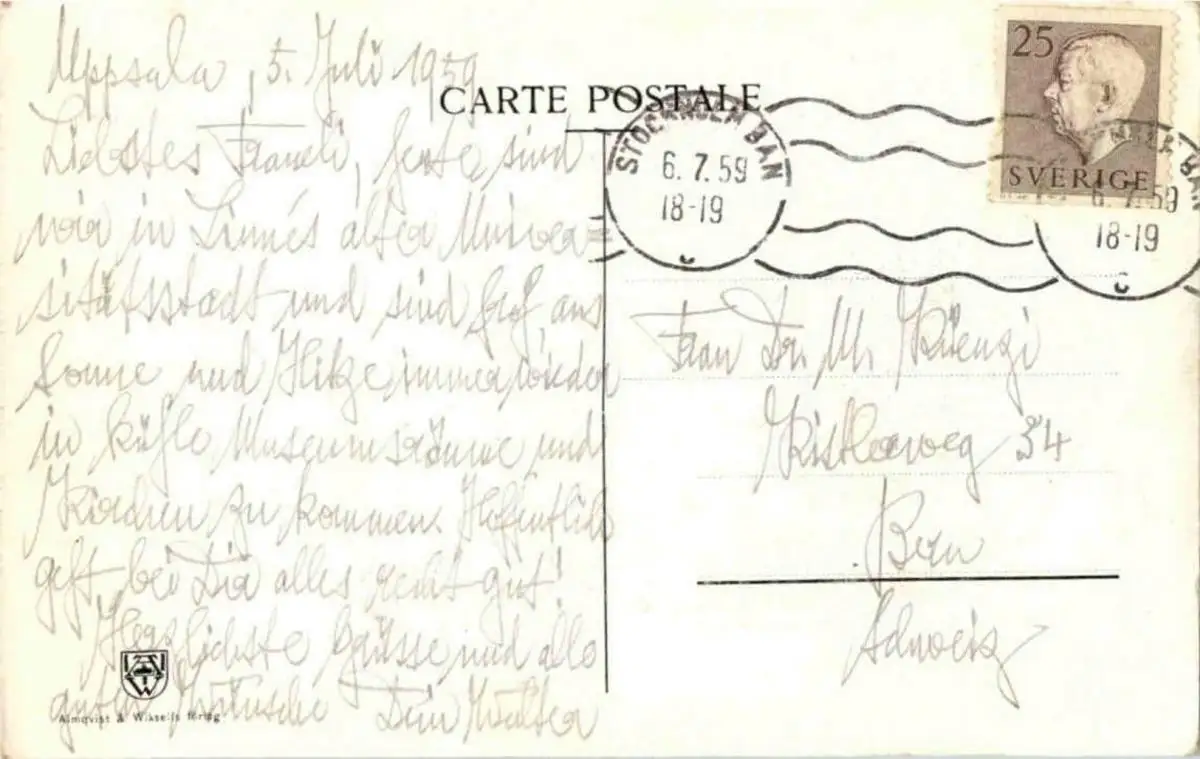 Uppsala, 5. Juli 1959
CARTE POSTALE
Liebstes Fraueli, heute sind
wir in Linnés alter Univer=
sitätsstadt und sind froh, aus
Sonne und Hitze immer wieder
in kühle Museumsräume und
Kirchen zu kommen. Hoffentlich
geht bei Dir alles recht gut!
Herzlichste Grüsse und alle
guten Wünsche Dein Walter
Almqvist & Wiksells förlag
STOCKHOLM BAN
6.7.59
18-19
25
SVERIGE
BAN
6.7.59
18-19
Frau Dr. M. Küenzi
Kistlerweg 34
Bern
Schweiz